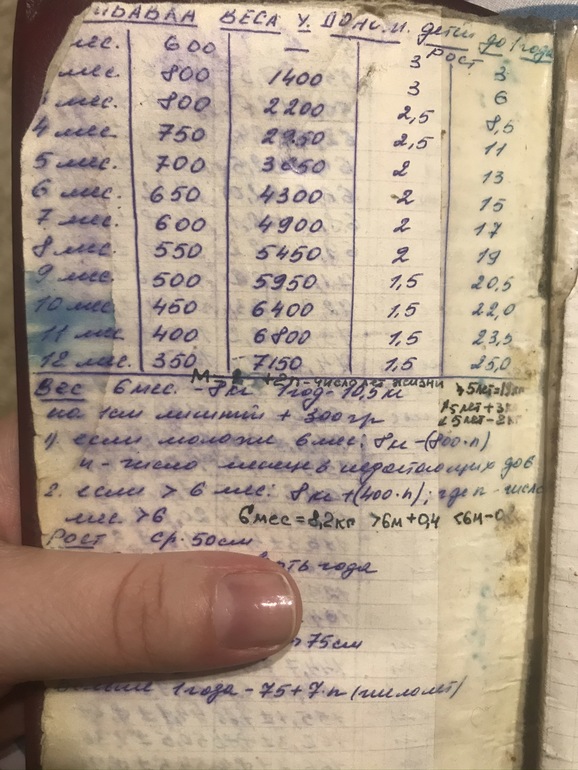 БАВКА ВЕСА У ДОНОШ. детей до 1 года
РОСТ
мес. 600 — 3 3
мес. 800 1400 3 6
мес. 800 2200 2,5 8,5
4 мес. 750 2950 2,5 11
5 мес. 700 3650 2 13
6 мес. 650 4300 2 15
7 мес. 600 4900 2 17
8 мес. 550 5450 2 19
9 мес. 500 5950 1,5 20,5
10 мес. 450 6400 1,5 22,0
11 мес 400 6800 1,5 23,5
12 мес. 350 7150 1,5 25,0
+2n - число лет жизни
Вес 6 мес. - 8 кг 1 год - 10,5 кг
на 1 см лишний + 300 гр
1) если моложе 6 мес: 8 кг - (800·n)
n - число месяцев недостающих до 6
2. если > 6 мес: 8 кг + (400·n); где n - число
мес. > 6 6 мес = 8,2 кг >6м + 0,4 <6м - 0,
Рост ср. 50 см
года
75 см
1 года - 75 + 7·n (число лет)